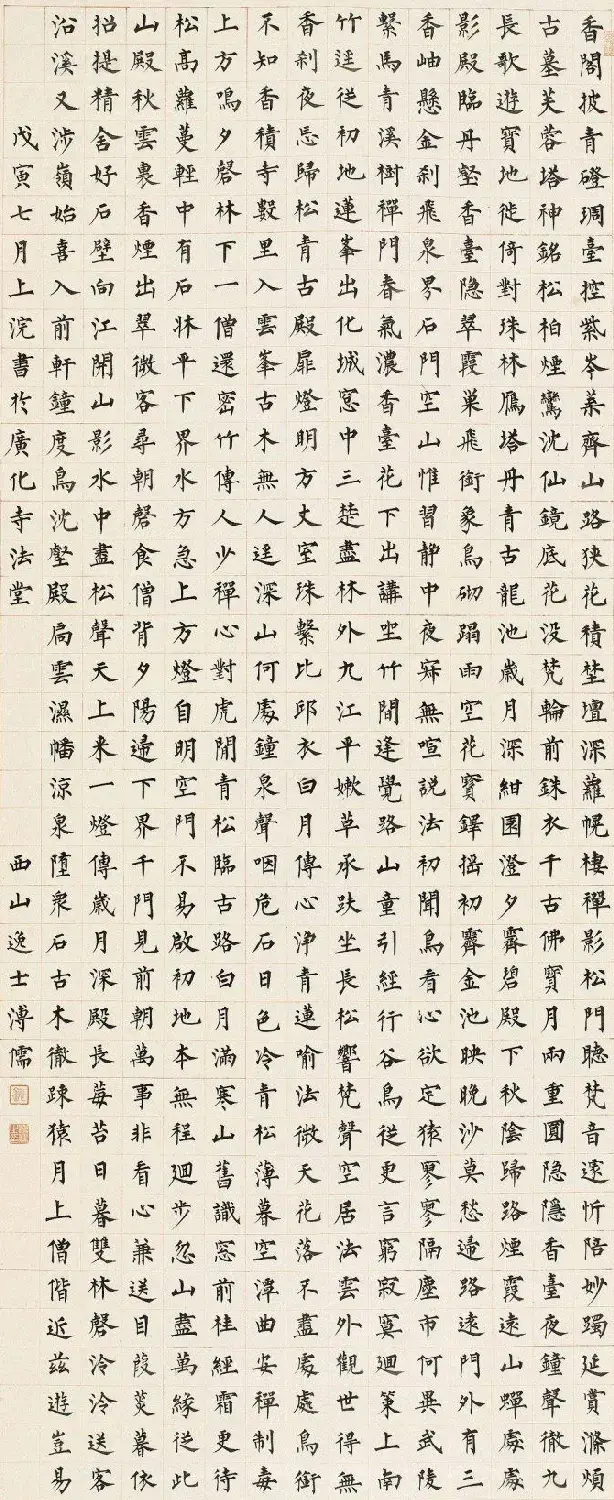 香閣披青磴琱臺控紫岑葉齊山路狹花積埜壇深蘿幌棲禪影松門聽梵音遠忻陪妙躅延賞滌煩
古墓芙蓉塔神銘松柏煙鸞沈仙鏡底花沒梵輪前銖衣千古佛寶月兩重圓隱隱香臺夜鐘聲徹九
長歌遊寶地徙倚對珠林鴈塔丹青古龍池歲月深紺園澄夕霽碧殿下秋陰歸路煙霞遠山蟬處處
影殿臨丹壑香臺隱翠霞巢飛銜象鳥砌蹋雨空花寶鐸搖初霽金池映晚沙莫愁歸路遠門外有三
香岫懸金刹飛泉界石門空山惟習靜中夜寂無喧說法初聞鳥看心欲定猿寥寥隔塵市何異武陵
繫馬青溪樹禪門春氣濃香臺花下出講坐竹間逢覺路山童引經行谷鳥從更言窮寂寞迴策上南
竹逕從初地蓮峯出化城窓中三楚盡林外九江平嫩草承趺坐長松響梵聲空居法雲外觀世得無
香刹夜忘歸松青古殿扉燈明方丈室珠繫比邱衣白月傳心淨青蓮喻法微天花落不盡處處鳥銜
不知香積寺數里入雲峯古木無人逕深山何處鐘泉聲咽危石日色冷青松薄暮空潭曲安禪制毒
上方鳴夕磬林下一僧還密竹傳人少禪心對虎閒青松臨古路白月滿寒山舊識窓前桂經霜更待
松高蘿蔓輕中有石牀平下界水方急上方燈自明空門不易啟初地本無程迴步忽山盡萬緣從此
山殿秋雲裏香煙出翠微客尋朝磬食僧背夕陽歸下界千門見前朝萬事非看心兼送目葭菼暮依
招提精舍好石壁向江開山影水中盡松聲天上來一燈傳歲月深殿長莓苔日暮雙林磬泠泠送客
沿溪又涉嶺始喜入前軒鐘度鳥沈壑殿扃雲濕幡涼泉墮衆石古木徹疎猿月上僧偕近茲遊豈易
戊寅七月上浣書於廣化寺法堂 西山逸士溥儒